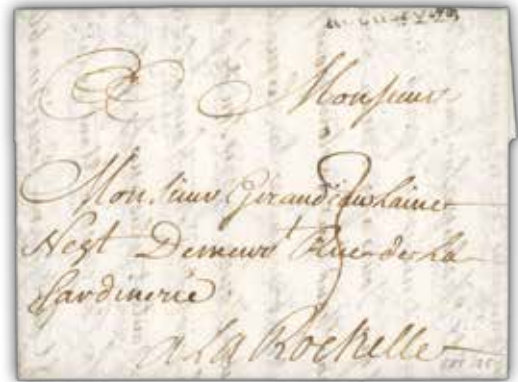 A Monsieur
Monsieur Giraudeau L'aine
Negt Demeurt Rue de La
Jardinerie
a La Rochelle